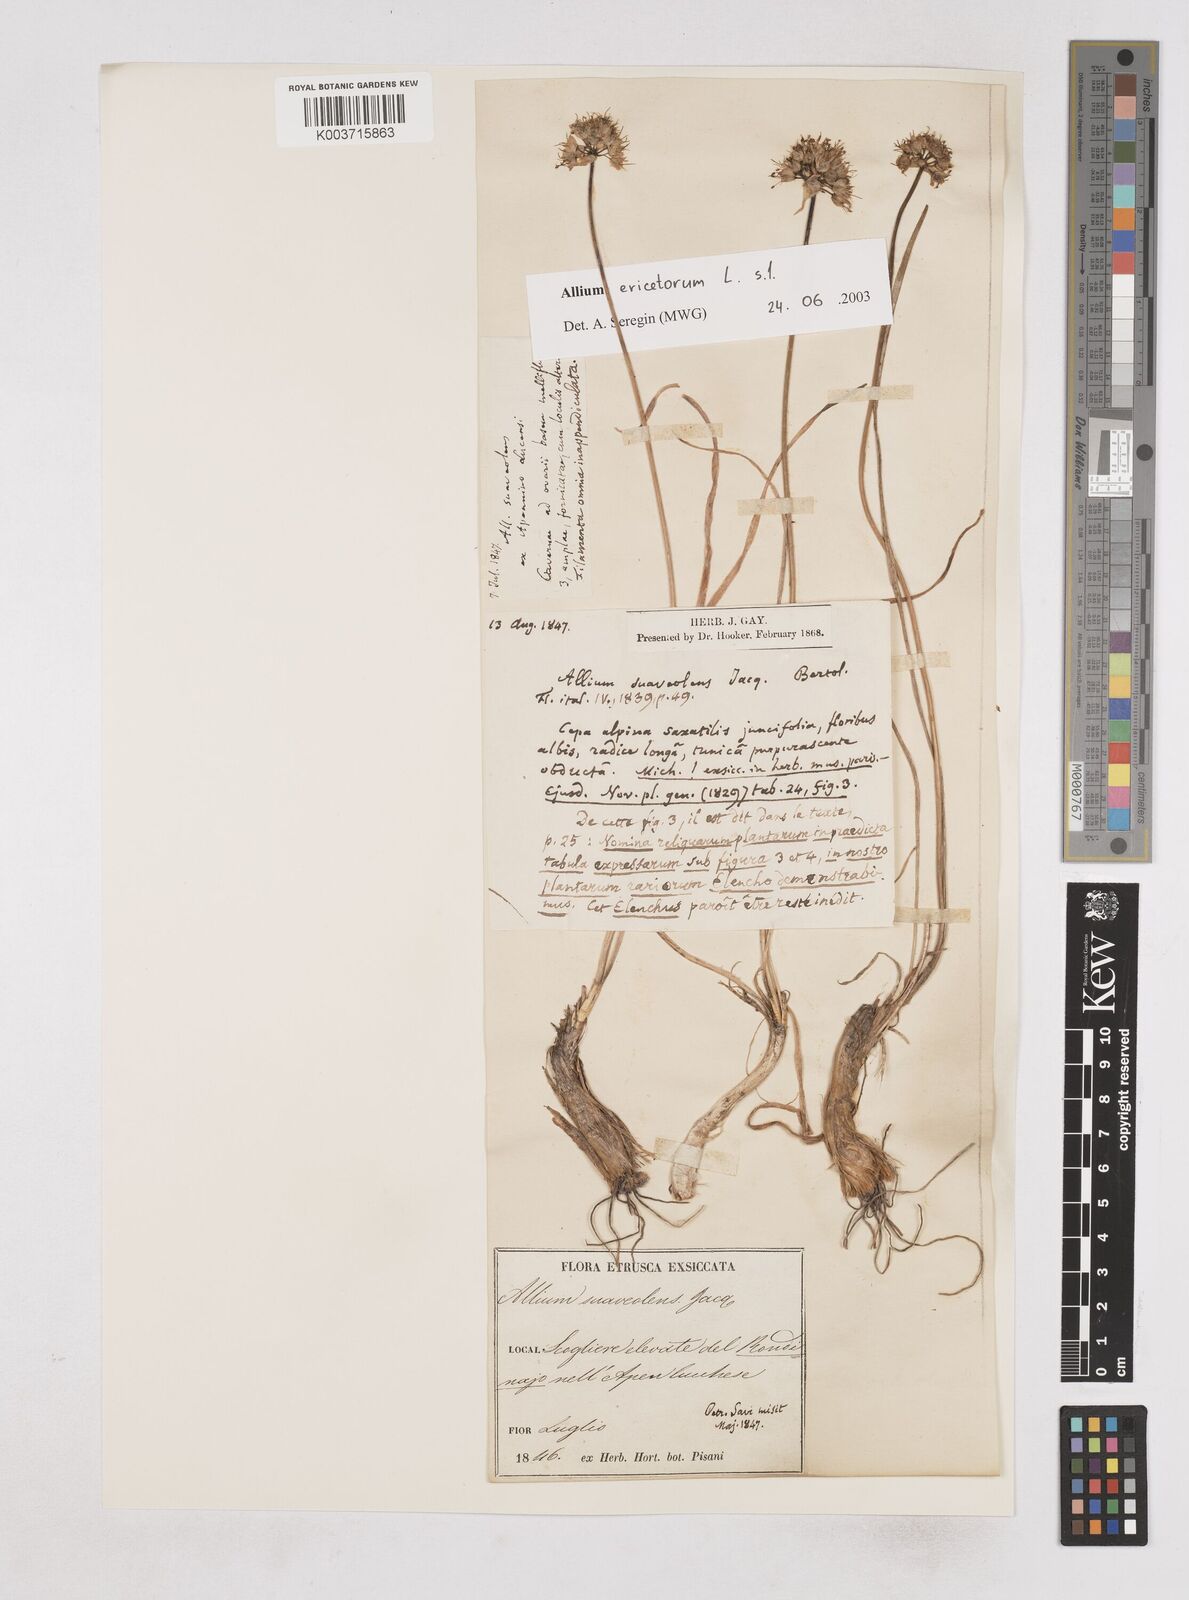 ROYAL BOTANIC GARDENS KEW
K003715863
Allium ericetorum L. s.l.
Det. A. Seregin (MWG) 24. 06 .2003
7 Jul. 1847.
All. suaveolens
ex Apennino Lucensi
Cavernae ad ovarii basin
3, amplae, fornicatae, cum loculis
Filamenta omnia inappendiculata.
13 Aug. 1847.
HERB. J. GAY.
Presented by Dr. Hooker, February 1868.
Allium suaveolens Jacq. Bertol.
Fl. ital. IV, 1839 p. 49.
Cepa alpina saxatilis juncifolia, floribus
albis, radice longâ, tunicâ purpurascente
obductâ. Mich.! exsicc. in herb. mus. paris. –
Ejusd. Nov. pl. gen. (1829) tab. 24, fig. 3.
De cette fig. 3, il est dit dans le texte,
p. 25 : Nomina reliquarum plantarum in praedicta
tabula expressarum sub figura 3 et 4, in nostro
plantarum rariorum Elencho demonstrabi-
mus. Cet Elenchus paroît être resté inédit.
FLORA ETRUSCA EXSICCATA
Allium suaveolens. Jacq
LOCAL Scogliere elevate del Rondi
najo nell' Apen Lucchese
Petr. Savi misit
Maj. 1847.
FIOR Luglio
1846. ex Herb. Hort. bot. Pisani
inches
Density
Don Williams
M000767
Royal Botanic Gardens
Kew
copyright reserved
0 1 2 3 4 5 6 7 8 9 10
cm